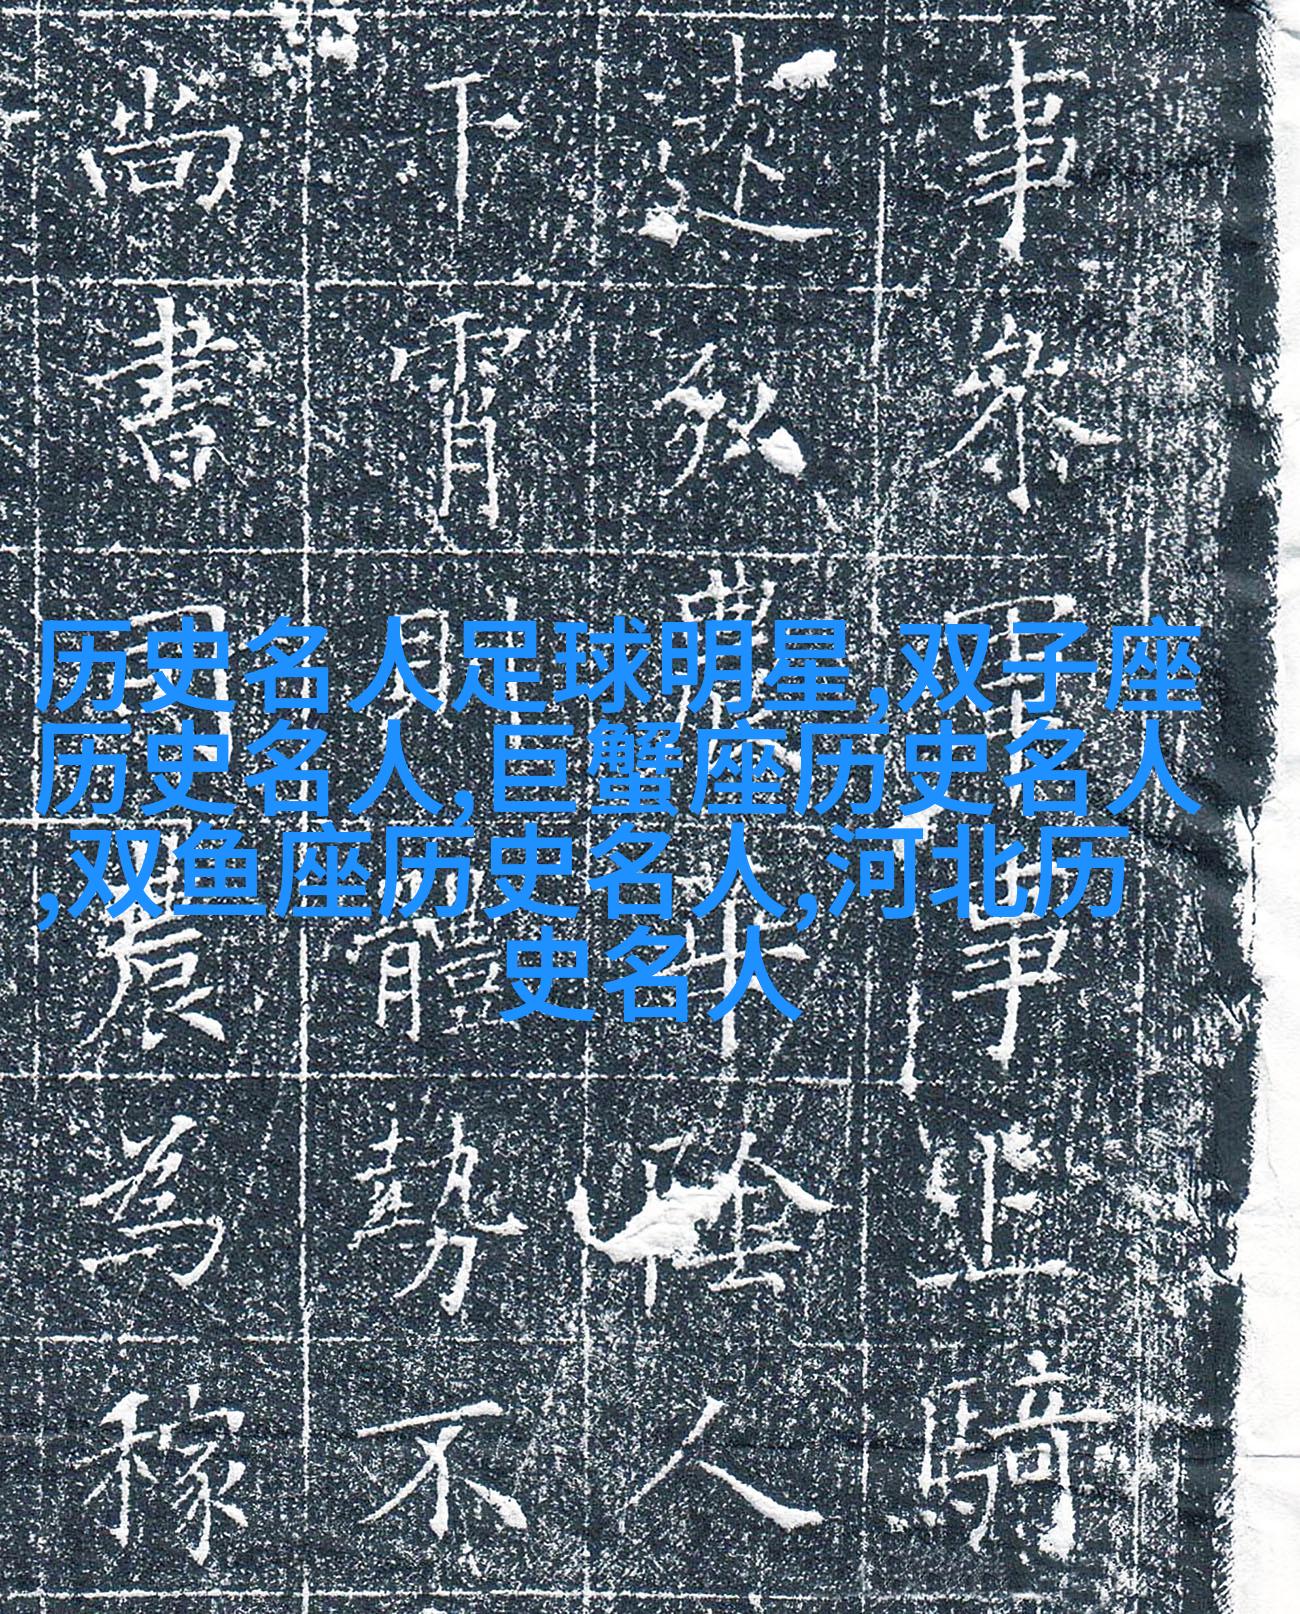 历史名人足球明星,双子座
历史名人,巨蟹座历史名人
,双鱼座历史名人,河北历
史名人
事參軍事上騎
弘農華陰人
下霄則體勢不
尚書為稼